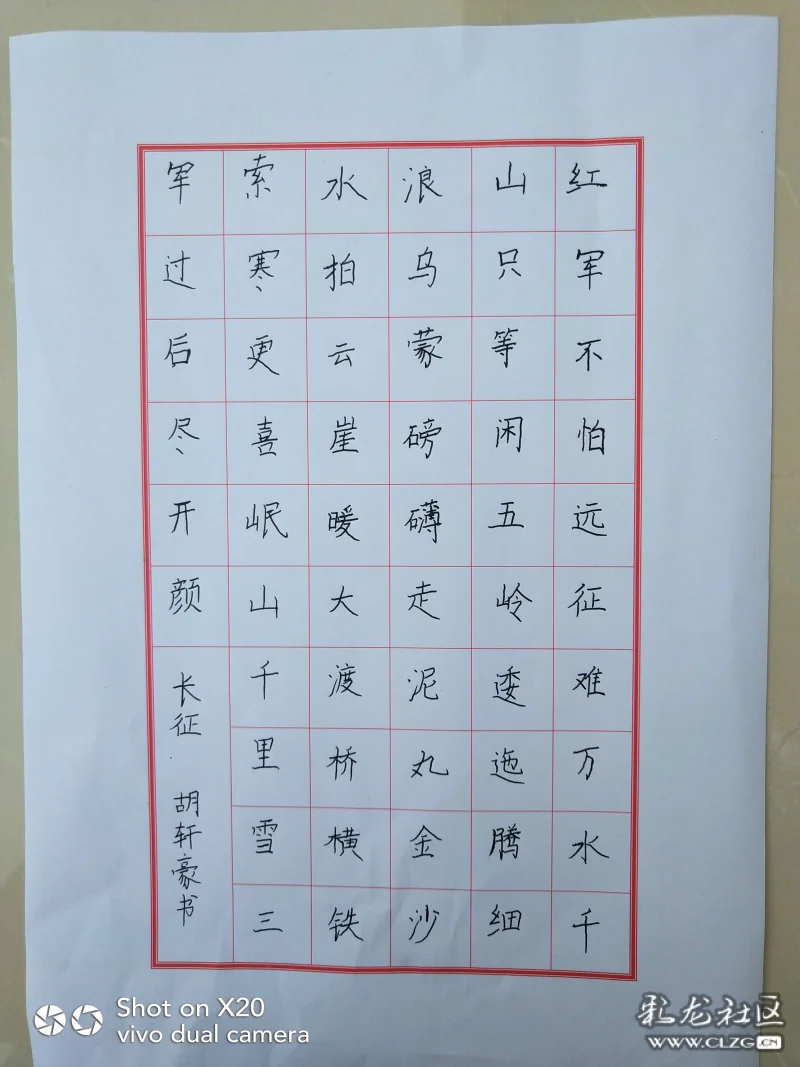 红军不怕远征难万水千
山只等闲五岭逶迤腾细
浪乌蒙磅礴走泥丸金沙
水拍云崖暖大渡桥横铁
索寒更喜岷山千里雪三
军过后尽开颜
长征 胡轩豪书
Shot on X20
vivo dual camera
彩龙社区
WWW.CLZG.CN